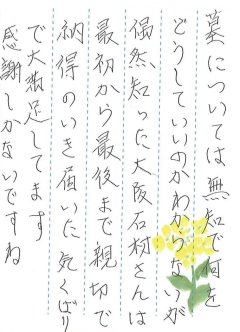 墓については無知で何を
どうしていいのかわからないが
偶然知った大阪石材さんは
最初から最後まで親切で
納得のいき届いた気くばり
で大満足してます
感謝しかないですね